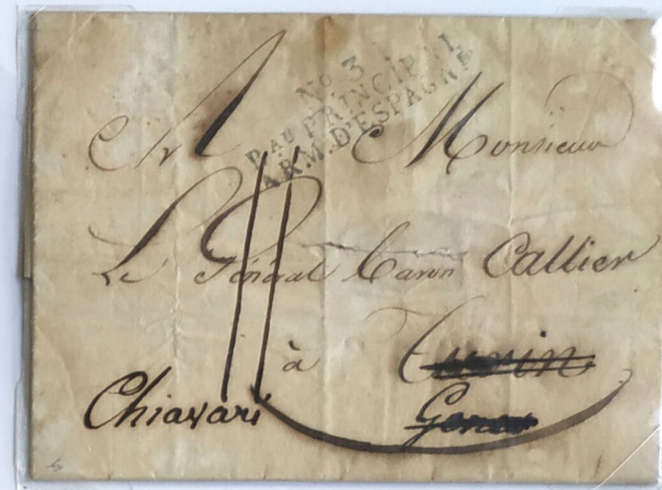 No 3
Bau PRINCIPAL
ARM. D'ESPAGNE
A Monsieur
Le Général Baron Callier
à Turin
Chiavari